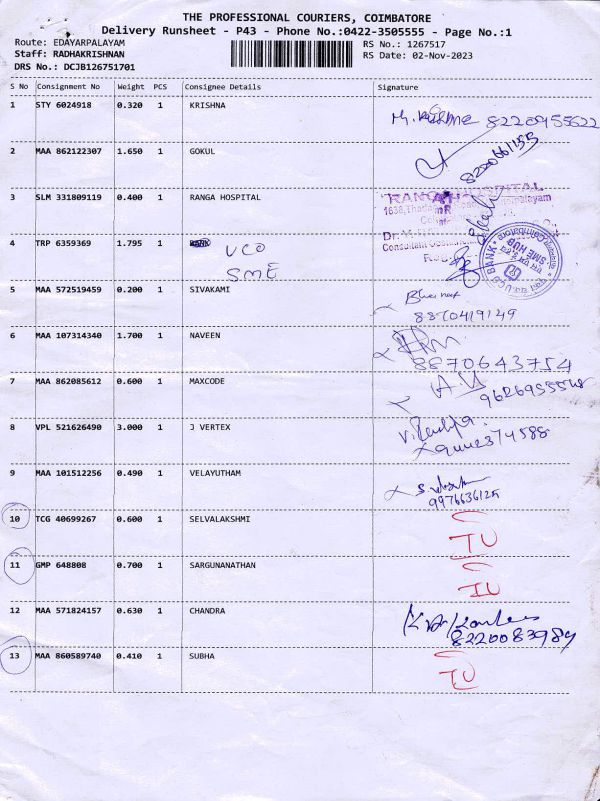 THE PROFESSIONAL COURIERS, COIMBATORE
Delivery Runsheet - P43 - Phone No.:0422-3505555 - Page No.:1
Route: EDAYARPALAYAM
Staff: RADHAKRISHNAN
DRS No.: DCJB126751701
RS No.: 1267517
RS Date: 02-Nov-2023
S No Consignment No Weight PCS Consignee Details Signature
1 STY 6024918 0.320 1 KRISHNA
8220955622
2 MAA 862122307 1.650 1 GOKUL
8220661155
3 SLM 331809119 0.400 1 RANGA HOSPITAL
RANGA HOSPITAL
4 TRP 6359369 1.795 1 BANK UCO
SME
UCO BANK
SME HUB
5 MAA 572519459 0.200 1 SIVAKAMI
8870419149
6 MAA 107314340 1.700 1 NAVEEN
8870643754
7 MAA 862085612 0.600 1 MAXCODE
8 VPL 521626490 3.000 1 J VERTEX
9 MAA 101512256 0.490 1 VELAYUTHAM
9976636125
10 TCG 40699267 0.600 1 SELVALAKSHMI
IU
11 GMP 648808 0.700 1 SARGUNANATHAN
IU
12 MAA 571824157 0.630 1 CHANDRA
8220083984
13 MAA 860589740 0.410 1 SUBHA
IU